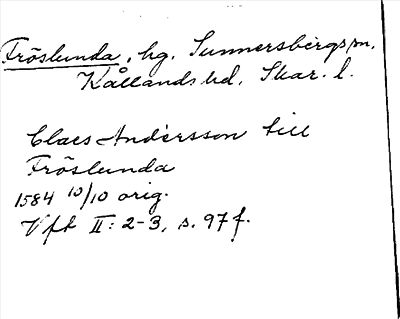 Fröslunda, hg. Sunnersbergs sn,
Kållands hd, Skar. l.
Claes Andersson till
Fröslunda
1584 10/10 orig.
Vft II: 2-3, s. 97 f.